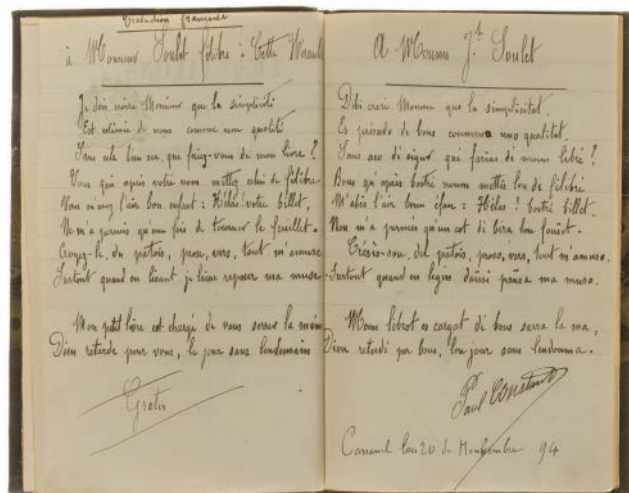 Traduction française
à Monsieur Soulet félibre à Cette Hérault
Je dois croire Monsieur que la simplicité
Est estimée de vous comme une qualité
Sans cela bien sur, que feriez-vous de mon livre ?
Vous qui après votre nom mettez celui de félibre
Vous m'avez l'air bon enfant : Hélas ! votre billet,
Ne m'a permis qu'une fois de tourner le feuillet.
Croyez-le, du patois, prose, vers, tout m'amuse
Surtout quand en lisant je laisse reposer ma muse
Mon petit livre est chargé de vous serrer la main
Dieu retarde pour vous, le jour sans lendemain
Gratis
A Moussu Jh Soulet
Dibi creire Moussu que la simplicitat
Es présado de bous coummo uno qualitat,
Sans aco di sigur qué farias de moun libré ?
Bous qu'après bostré noum mettès lou de félibre
M'abès l'air boun éfan : Hélas ! bostré billet.
Nou m'a permés qu'un cot di bira lou fuièt.
Crésès-sou, del patois, proso, vers, tout m'amuso.
Surtout quand en legin daissi pausa ma muso.
Moun librot es cargat di bous serra la ma,
Dieu retardi per bous, lou jour sans lendouma.
Paul Constans
lou 20 de 94